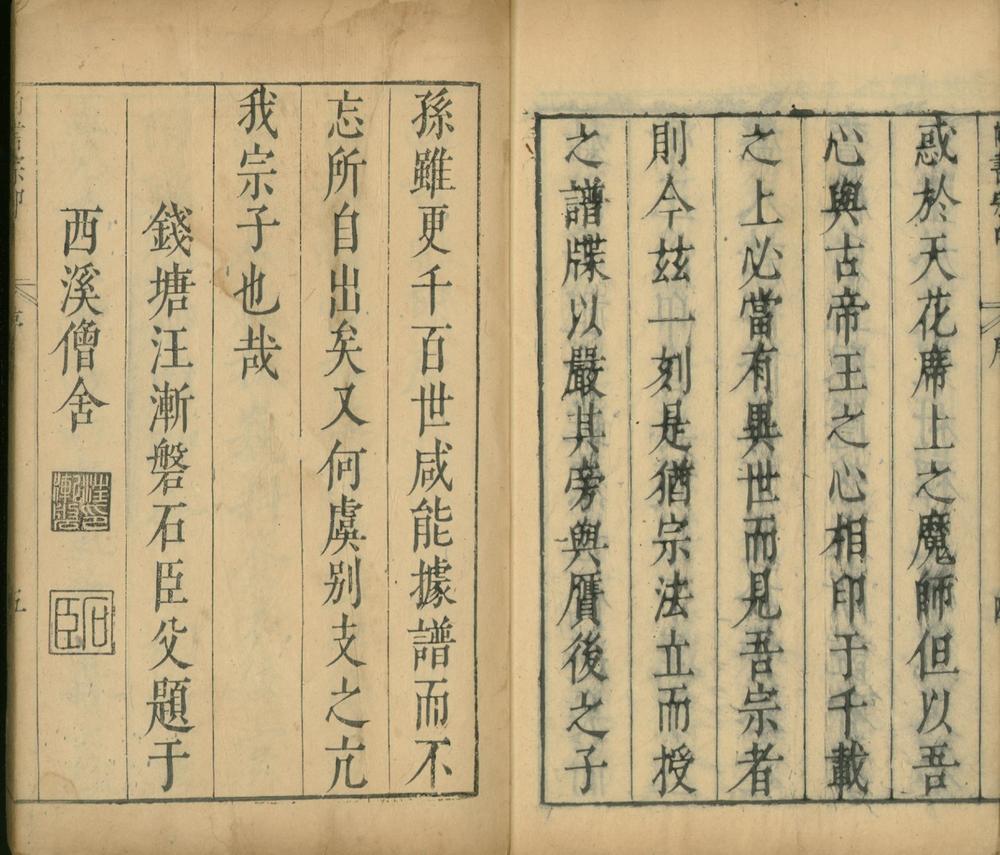 惑於天花席上之魔師但以吾
心與古帝王之心相印于千載
之上必當有異世而見吾宗者
則今茲一刻是猶宗法立而授
之譜牒以嚴其旁與贗後之子
孫雖更千百世咸能據譜而不
忘所自出矣又何虞别支之亢
我宗子也哉
錢塘汪漸磐石臣父題于
西溪僧舍
汪印漸磐
石臣